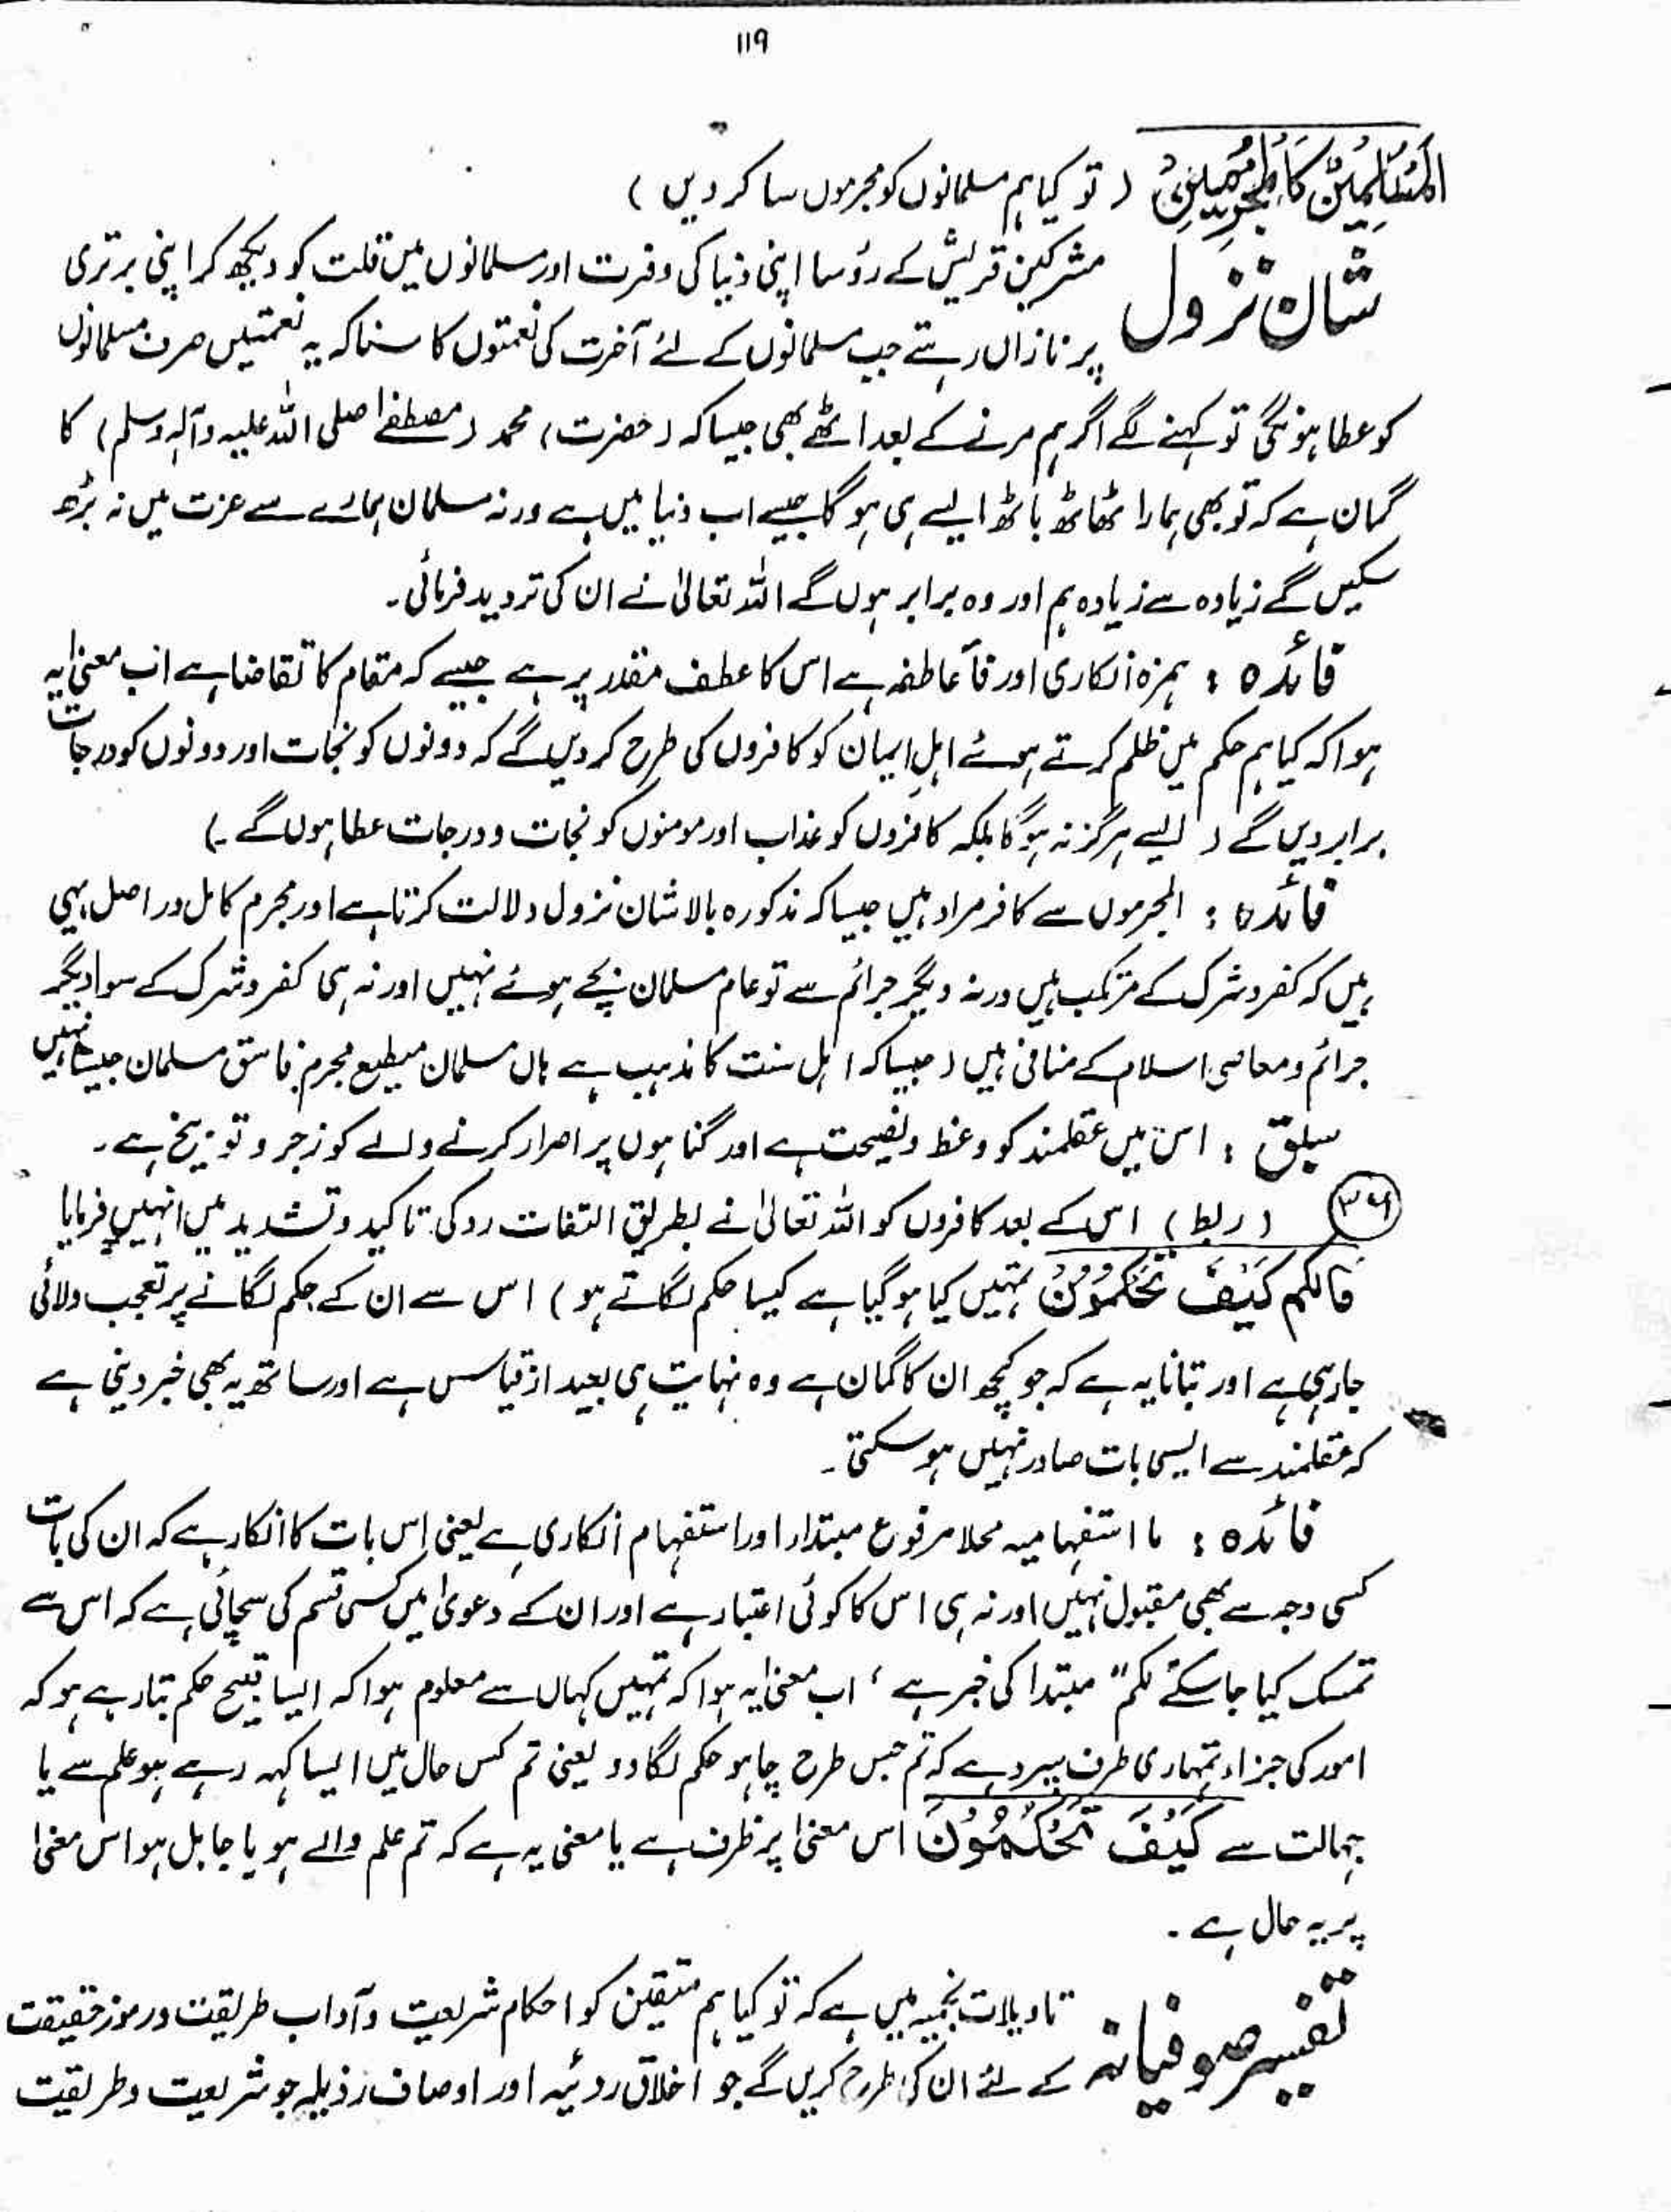 ۱۱۹
الْمُسْلِمِیْنَ کَالْمُجْرِمِیْنَ ( تو کیا ہم مسلمانوں کو مجرموں سا کر دیں )
شان نزول مشرکین قریش کے رؤسا اپنی دنیا کی وفرت اور مسلمانوں میں قلت کو دیکھ کر اپنی برتری
پر نازاں رہتے جب مسلمانوں کے لئے آخرت کی نعمتوں کا سنا کہ یہ نعمتیں صرف مسلمانوں
کو عطا ہونگی تو کہنے لگے اگر ہم مرنے کے بعد اٹھے بھی جیسا کہ (حضرت) محمد (مصطفےٰ صلی اللہ علیہ وآلہٖ وسلم) کا
گمان ہے کہ تو بھی ہمارا ٹھاٹھ باٹھ ایسے ہی ہو گا جیسے اب دنیا میں ہے ورنہ مسلمان ہمارے سے عزت میں نہ بڑھ
سکیں گے زیادہ سے زیادہ ہم اور وہ برابر ہوں گے اللہ تعالیٰ نے ان کی تردید فرمائی۔
فائدہ : ہمزہ انکاری اور فآ عاطفہ ہے اس کا عطف مقدر پر ہے جیسے کہ مقام کا تقاضا ہے اب معنیٰ یہ
ہوا کہ کیا ہم حکم میں ظلم کرتے ہوئے اہلِ ایمان کو کافروں کی طرح کر دیں گے کہ دونوں کو نجات اور دونوں کو درجات
برابر دیں گے ( ایسے ہرگز نہ ہو گا بلکہ کافروں کو عذاب اور مومنوں کو نجات و درجات عطا ہوں گے ۔)
فائدہ : المجرموں سے کافر مراد ہیں جیسا کہ مذکورہ بالا شان نزول دلالت کرتا ہے اور مجرم کامل دراصل یہی
ہیں کہ کفر و شرک کے مرتکب ہیں ورنہ دیگر جرائم سے تو عام مسلمان بچے ہوئے نہیں اور نہ ہی کفر و شرک کے سوا دیگر
جرائم و معاصی اسلام کے منافی ہیں ( جیسا کہ اہل سنت کا مذہب ہے ہاں مسلمان مطیع مجرم فاسق مسلمان جیسا نہیں
سبق : اس میں عقلمند کو وعظ و نصیحت ہے اور گناہوں پر اصرار کرنے والے کو زجر و توبیخ ہے ۔
۳۶ ( ربط ) اس کے بعد کافروں کو اللہ تعالیٰ نے بطریق التفات رد کی تاکید و تشدید میں انہیں فرمایا
مَالَکُمْ کَیْفَ تَحْکُمُوْنَ تمہیں کیا ہو گیا ہے کیسا حکم لگاتے ہو ) اس سے ان کے حکم لگانے پر تعجب دلائی
جا رہی ہے اور بتانا یہ ہے کہ جو کچھ ان کا گمان ہے وہ نہایت ہی بعید از قیاس ہے اور ساتھ یہ بھی خبر دینی ہے
کہ عقلمند سے ایسی بات صادر نہیں ہو سکتی ۔
فائدہ : ما استفہامیہ محلا مرفوع مبتدا اور استفہام انکاری ہے یعنی اس بات کا انکار ہے کہ ان کی بات
کسی وجہ سے بھی مقبول نہیں اور نہ ہی اس کا کوئی اعتبار ہے اور ان کے دعویٰ میں کسی قسم کی سچائی ہے کہ اس سے
تمسک کیا جا سکے لکم" مبتدا کی خبر ہے ، اب معنیٰ یہ ہوا کہ تمہیں کہاں سے معلوم ہوا کہ ایسا قبیح حکم بتا رہے ہو کہ
امور کی جزاء تمہاری طرف سپرد ہے کہ تم جس طرح چاہو حکم لگا دو یعنی تم کس حال میں ایسا کہہ رہے ہو علم سے یا
جہالت سے کَیْفَ تَحْکُمُوْنَ اس معنیٰ پر ظرف ہے یا معنی یہ ہے کہ تم علم والے ہو یا جاہل ہو اس معنیٰ
پر یہ حال ہے ۔
تفسیر صوفیانہ تاویلات نجمیہ میں ہے کہ تو کیا ہم متقین کو احکام شریعت و آداب طریقت و رموز حقیقت
کے لئے ان کی طرح کریں گے جو اخلاق ردئیہ اور اوصاف رذیلہ جو شریعت و طریقت